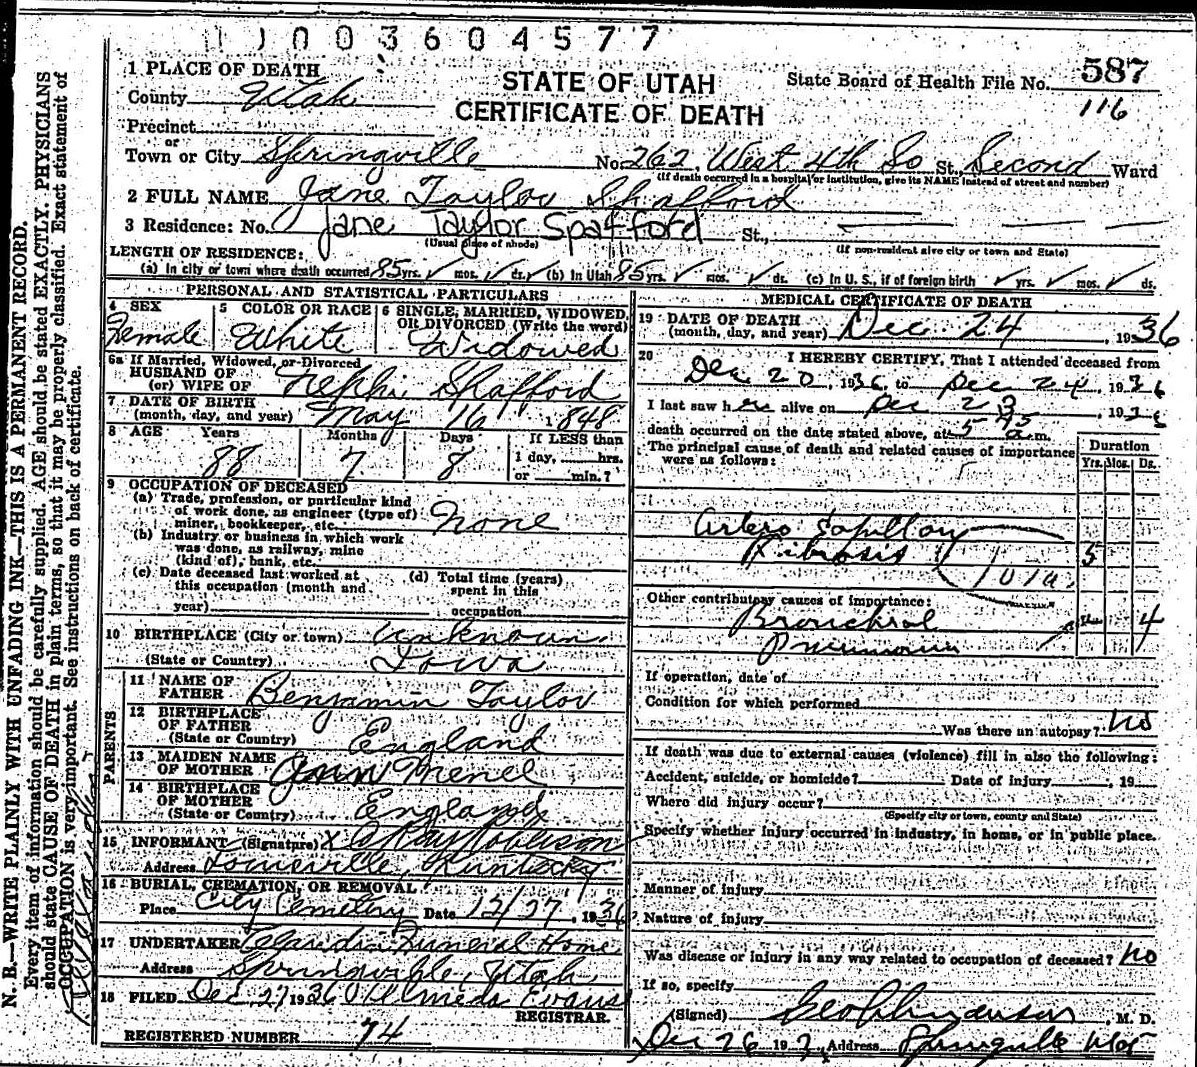 1003604577
1 PLACE OF DEATH
STATE OF UTAH
State Board of Health File No. 587
County Utah
CERTIFICATE OF DEATH
116
Precinct
or
Town or City Springville No. 262 West 4th So St., Second Ward
(If death occurred in a hospital or institution, give its NAME instead of street and number)
2 FULL NAME Jane Taylor Spafford
3 Residence: No. Jane Taylor Spafford St.,
(Usual place of abode) (If non-resident give city or town and State)
LENGTH OF RESIDENCE:
(a) In city or town where death occurred 85 yrs. mos. ds. (b) In Utah 85 yrs. mos. ds. (c) In U. S., if of foreign birth yrs. mos. ds.
PERSONAL AND STATISTICAL PARTICULARS
4 SEX 5 COLOR OR RACE 6 SINGLE, MARRIED, WIDOWED, OR DIVORCED (Write the word)
Female White Widowed
6a If Married, Widowed, or Divorced
HUSBAND OF
(or) WIFE OF Nephi Spafford
7 DATE OF BIRTH
(month, day, and year) May 16 1848
8 AGE Years Months Days If LESS than
88 7 8 1 day, hrs.
or min.?
9 OCCUPATION OF DECEASED
(a) Trade, profession, or particular kind
of work done, as engineer (type of)
miner, bookkeeper, etc. None
(b) Industry or business in which work
was done, as railway, mine
(kind of), bank, etc.
(c) Date deceased last worked at
this occupation (month and
year)
(d) Total time (years)
spent in this
occupation
10 BIRTHPLACE (City or town) Unknown
(State or Country) Iowa
PARENTS
11 NAME OF
FATHER Benjamin Taylor
12 BIRTHPLACE
OF FATHER
(State or Country) England
13 MAIDEN NAME
OF MOTHER Ann Menel
14 BIRTHPLACE
OF MOTHER
(State or Country) England
15 INFORMANT (Signature) X
Address Louisville, Kentucky
16 BURIAL, CREMATION, OR REMOVAL
Place City Cemetery Date 12/27, 1936
17 UNDERTAKER Funeral Home
Address Springville, Utah
18 FILED Dec 27 1936 Almeda Evans
REGISTRAR.
REGISTERED NUMBER 74
MEDICAL CERTIFICATE OF DEATH
19 DATE OF DEATH
(month, day, and year) Dec 24, 1936
20 I HEREBY CERTIFY, That I attended deceased from
Dec 20, 1936, to Dec 24, 1936
I last saw her alive on Dec 23, 1936
death occurred on the date stated above, at 5 45 a.m.
The principal cause of death and related causes of importance
were as follows:
Duration
Yrs. Mos. Ds.
Artero Capillary
Fibrosis 5
Other contributory causes of importance:
Bronchial 4
Pneumonia
If operation, date of
Condition for which performed
Was there an autopsy? No
If death was due to external causes (violence) fill in also the following:
Accident, suicide, or homicide? Date of injury , 19
Where did injury occur?
(Specify city or town, county and State)
Specify whether injury occurred in industry, in home, or in public place.
Manner of injury
Nature of injury
Was disease or injury in any way related to occupation of deceased? No
If so, specify
(Signed) , M. D.
Dec 26 193 Address Springville Utah
N. B.—WRITE PLAINLY WITH UNFADING INK—THIS IS A PERMANENT RECORD.
Every item of information should be carefully supplied. AGE should be stated EXACTLY. PHYSICIANS
should state CAUSE OF DEATH in plain terms, so that it may be properly classified. Exact statement of
OCCUPATION is very important. See instructions on back of certificate.